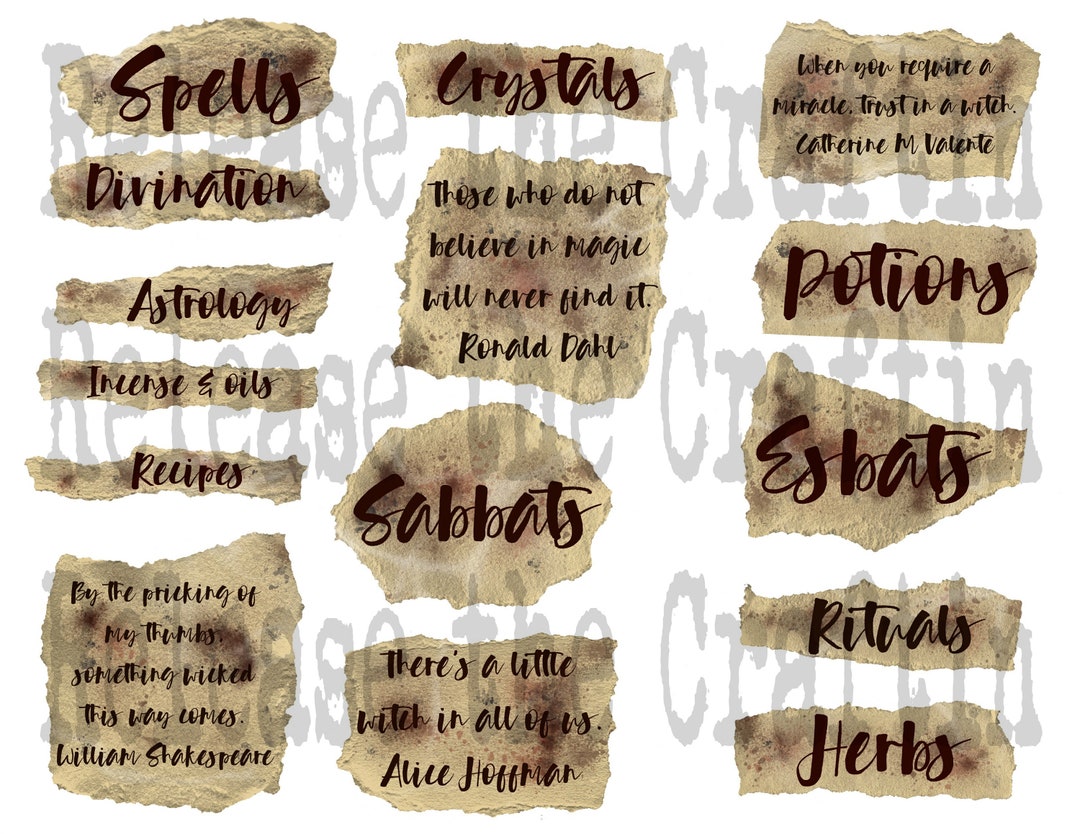 Spells
Divination
Astrology
Incense & oils
Recipes
By the pricking of
my thumbs,
something wicked
this way comes.
William Shakespeare
Crystals
Those who do not
believe in magic
will never find it.
Ronald Dahl
Sabbats
There's a little
witch in all of us.
Alice Hoffman
When you require a
miracle, trust in a witch.
Catherine M Valente
Potions
Esbats
Rituals
Herbs
Release the Craftin
Release the Craftin
Release the Craftin